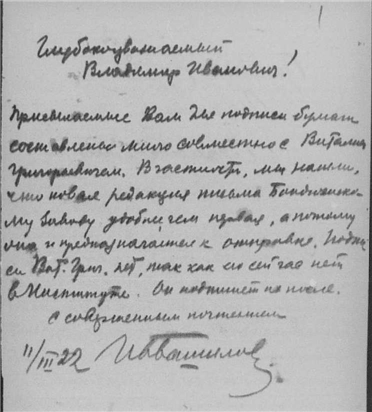 Глубокоуважаемый
Владимир Иванович!
Присылаемые Вам для подписи бумаги
составлены мною совместно с Виталием
Григорьевичем. В частности, мы нашли,
что новая редакция письма Бондюжско-
му заводу удобнее чем первая, а потому
она и предназначается к отправке. Подпи-
си Вит. Григ. нет, так как его сейчас нет
в Институте. Он подпишет после.
С совершенным почтением
11/III 22